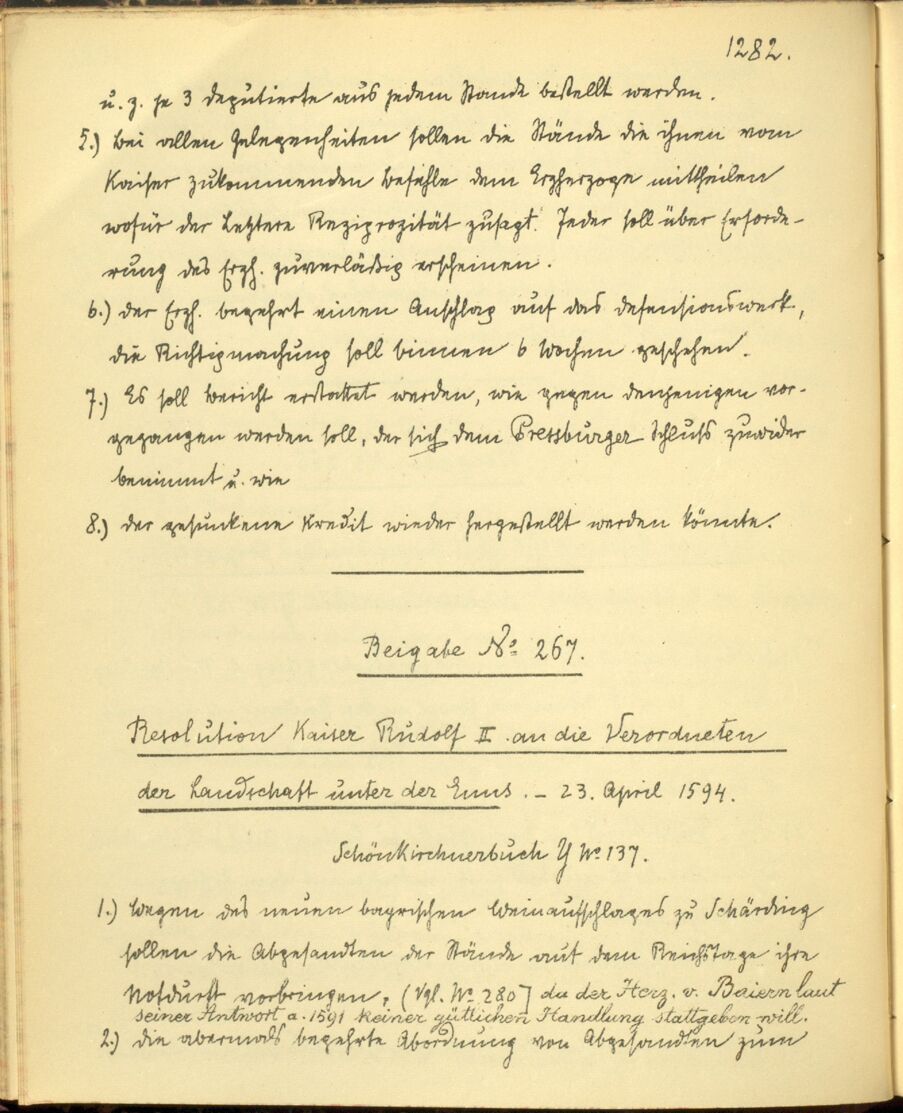 1282.
u. z. je 3 Deputierte aus jedem Stande bestellt werden.
5.) Bei allen Gelegenheiten sollen die Stände die ihnen vom
Kaiser zukommenden Befehle dem Erzherzoge mittheilen
wofür der Letztere Reziprozität zusagt. Jeder soll über Erforde-
rung des Erzh. zuverläßig erscheinen.
6.) Der Erzh. begehrt einen Anschlag auf das Defensionswerk,
die Richtigmachung soll binnen 6 Wochen geschehen.
7.) Es soll Bericht erstattet werden, wie gegen denjenigen vor-
gegangen werden soll, der sich dem Pressburger Schluß zuwider
benimmt u. wie
8.) der gesunkene Kredit wieder hergestellt werden könnte.
Beigabe No 267.
Resolution Kaiser Rudolf II. an die Verordneten
der Landschaft unter der Enns. – 23. April 1594.
Schönkirchnerbuch Y No 137.
1.) Wegen des neuen bayrischen Weinaufschlages zu Schärding
sollen die Abgesandten der Stände auf dem Reichstage ihre
Notdurft vorbringen, (Vgl. No 280) da der Herz. v. Baiern laut
seiner Antwort a. 1591 keiner gütlichen Handlung stattgeben will.
2.) Die abermals begehrte Abordnung von Abgesandten zum